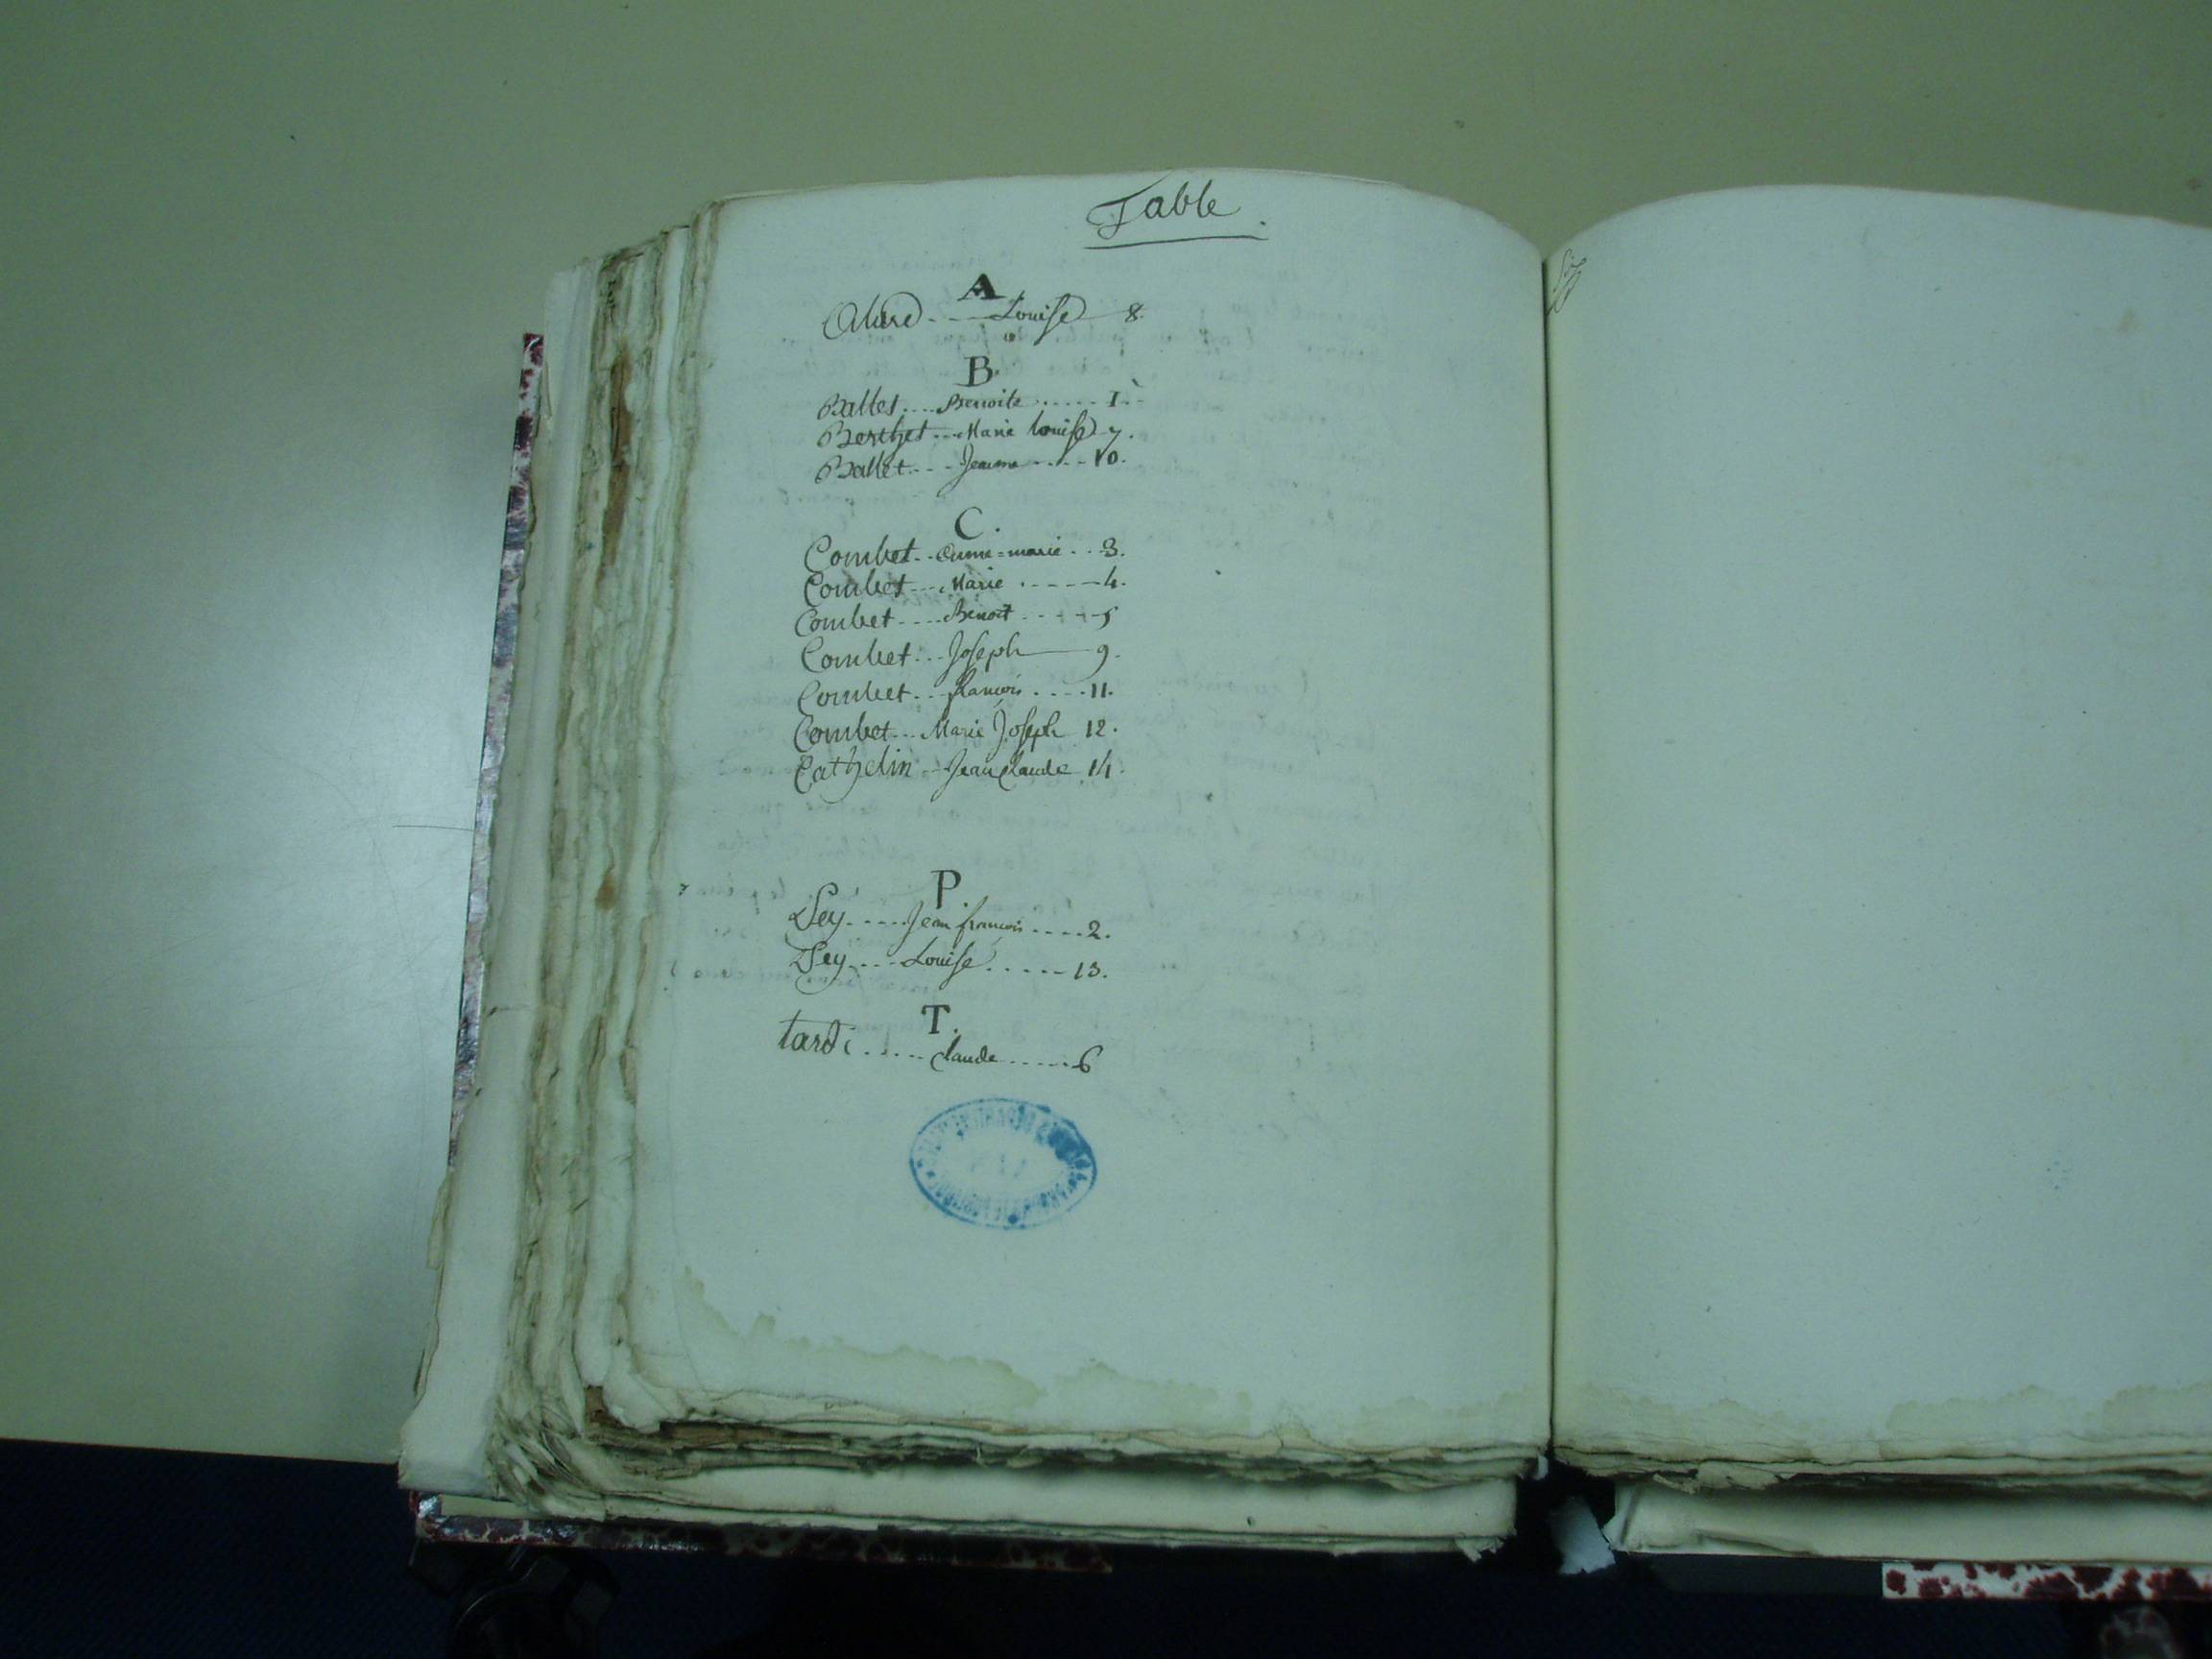 Table.
A
Louise 8.
B.
Ballet .... Benoite ..... 1.
Berthet ... Marie Louise 7.
Ballet ... Jeanne .... 10.
C.
Combet .. Anne=marie .. 3.
Combet ... Marie ..... 4.
Combet .... Benoit ..... 5
Combet ... Joseph 9.
Combet ... francois .... 11.
Combet ... Marie Joseph 12.
Cathelin .. Jean Claude 14.
P.
Pey .... Jean francois .... 2.
Pey .... Louise ..... 13.
T.
tardi ..... Claude ..... 6